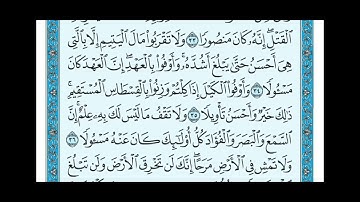 ٱلْقَتْلِ إِنَّهُۥ كَانَ مَنصُورًا ٣٣ وَلَا تَقْرَبُوا۟ مَالَ ٱلْيَتِيمِ إِلَّا بِٱلَّتِى
هِىَ أَحْسَنُ حَتَّىٰ يَبْلُغَ أَشُدَّهُۥ وَأَوْفُوا۟ بِٱلْعَهْدِ إِنَّ ٱلْعَهْدَ كَانَ
مَسْـُٔولًا ٣٤ وَأَوْفُوا۟ ٱلْكَيْلَ إِذَا كِلْتُمْ وَزِنُوا۟ بِٱلْقِسْطَاسِ ٱلْمُسْتَقِيمِ
ذَٰلِكَ خَيْرٌ وَأَحْسَنُ تَأْوِيلًا ٣٥ وَلَا تَقْفُ مَا لَيْسَ لَكَ بِهِۦ عِلْمٌ إِنَّ
ٱلسَّمْعَ وَٱلْبَصَرَ وَٱلْفُؤَادَ كُلُّ أُو۟لَـٰٓئِكَ كَانَ عَنْهُ مَسْـُٔولًا ٣٦
وَلَا تَمْشِ فِى ٱلْأَرْضِ مَرَحًا إِنَّكَ لَن تَخْرِقَ ٱلْأَرْضَ وَلَن تَبْلُغَ